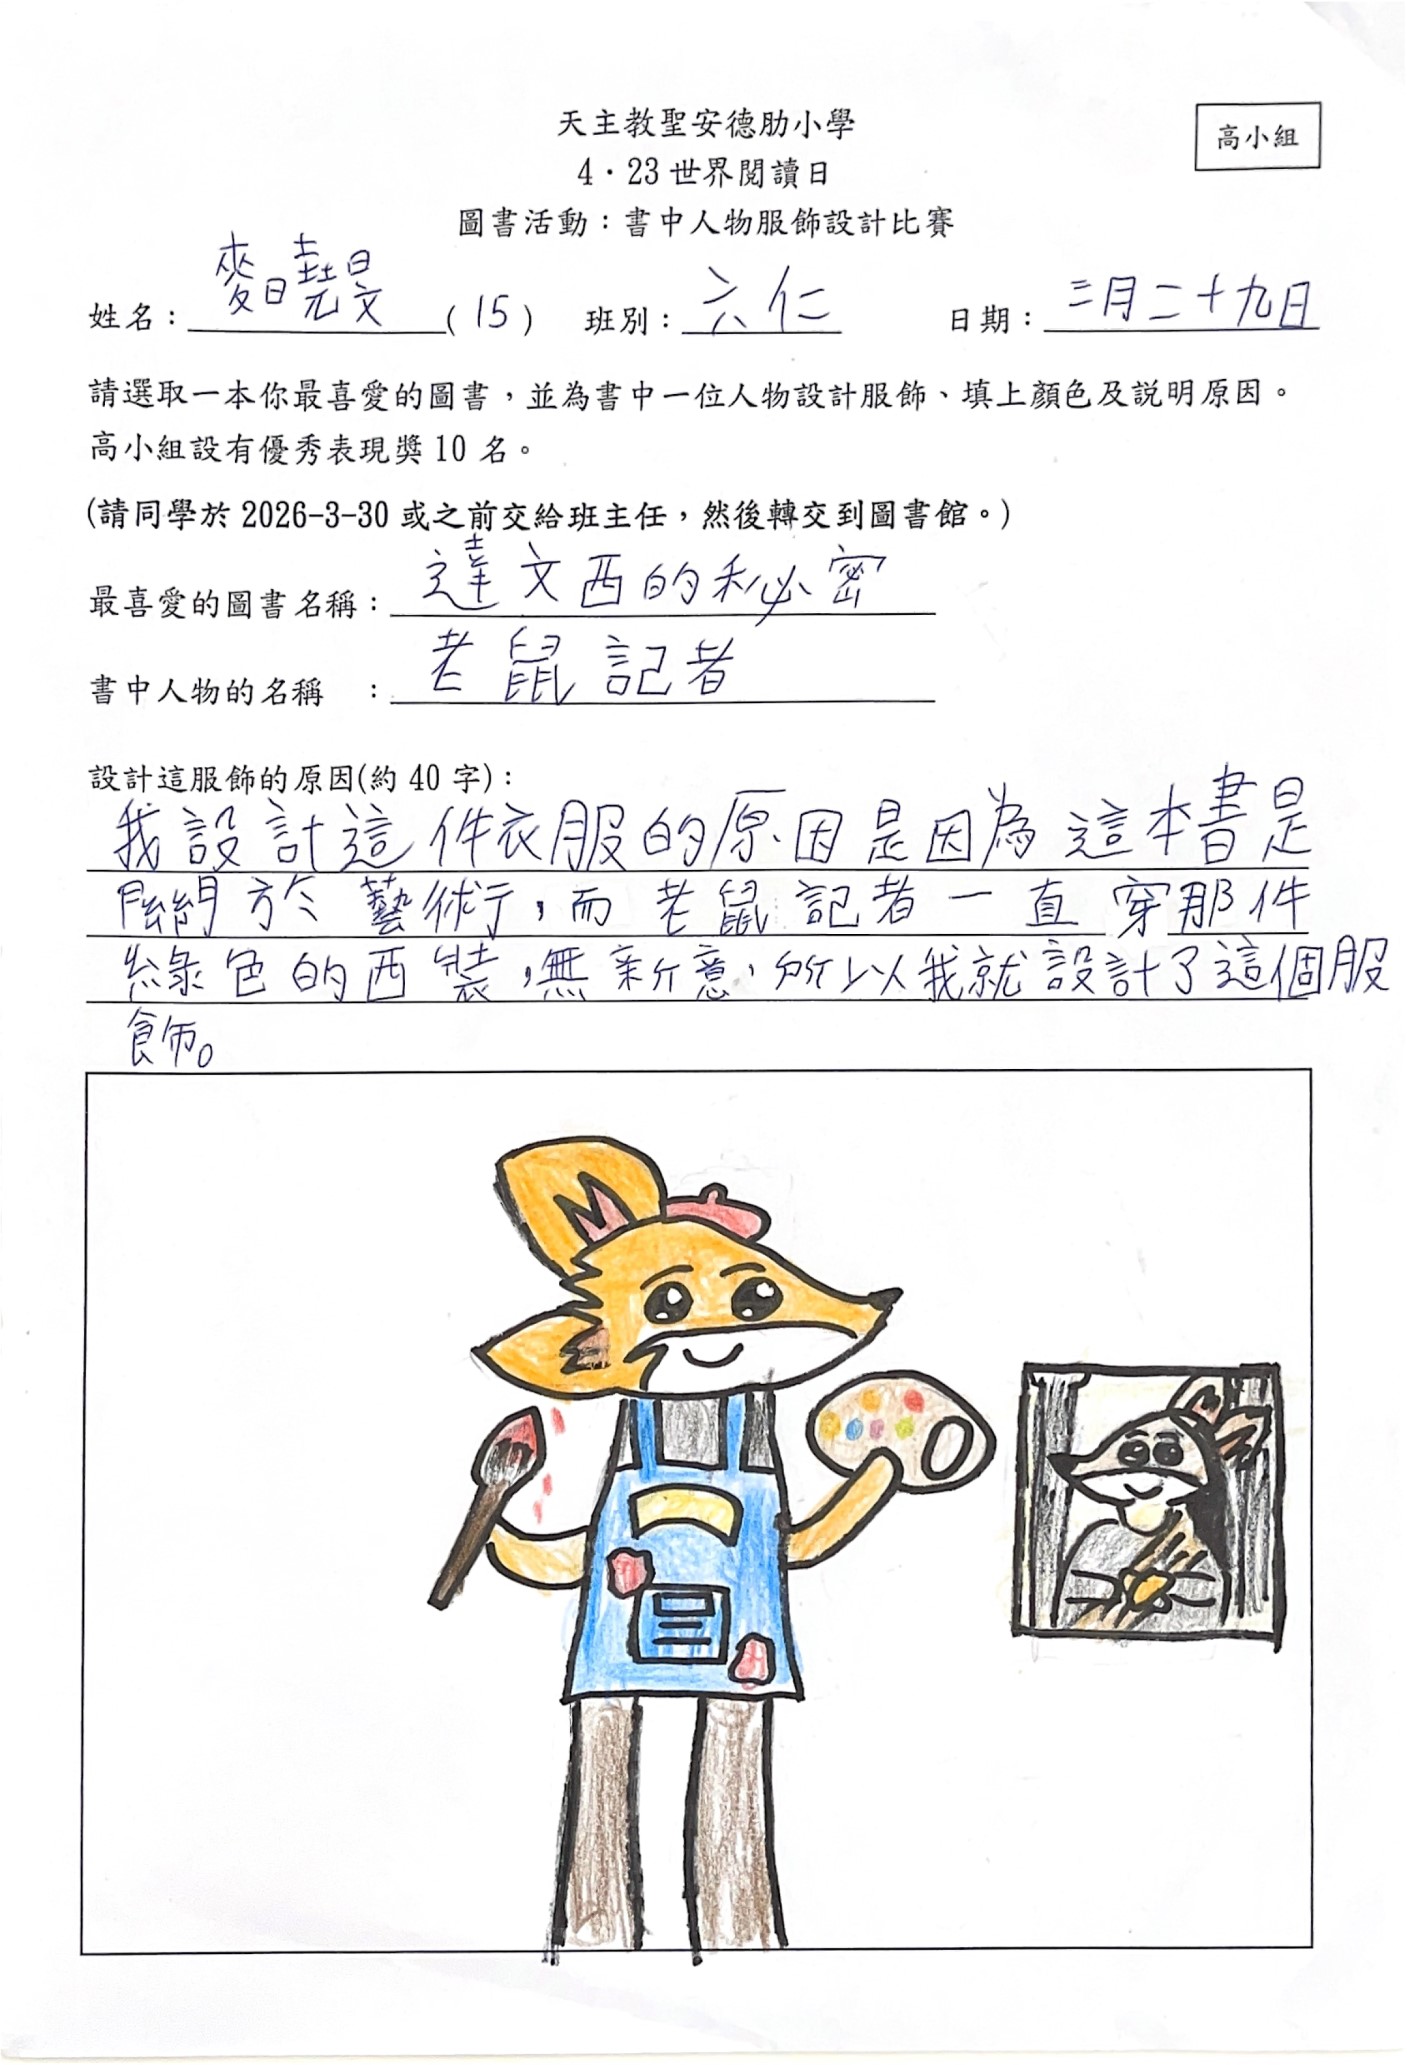 天主教聖安德肋小學
高小組
4·23世界閱讀日
圖書活動：書中人物服飾設計比賽
姓名：麥曉旻(15) 班別：六仁 日期：三月二十九日
請選取一本你最喜愛的圖書，並為書中一位人物設計服飾、填上顏色及說明原因。
高小組設有優秀表現獎10名。
(請同學於2026-3-30或之前交給班主任，然後轉交到圖書館。)
最喜愛的圖書名稱：達文西的秘密
書中人物的名稱 ：老鼠記者
設計這服飾的原因(約40字)：
我設計這件衣服的原因是因為這本書是
關於藝術，而老鼠記者一直穿那件
綠色的西裝，無新意，所以我就設計了這個服
飾。